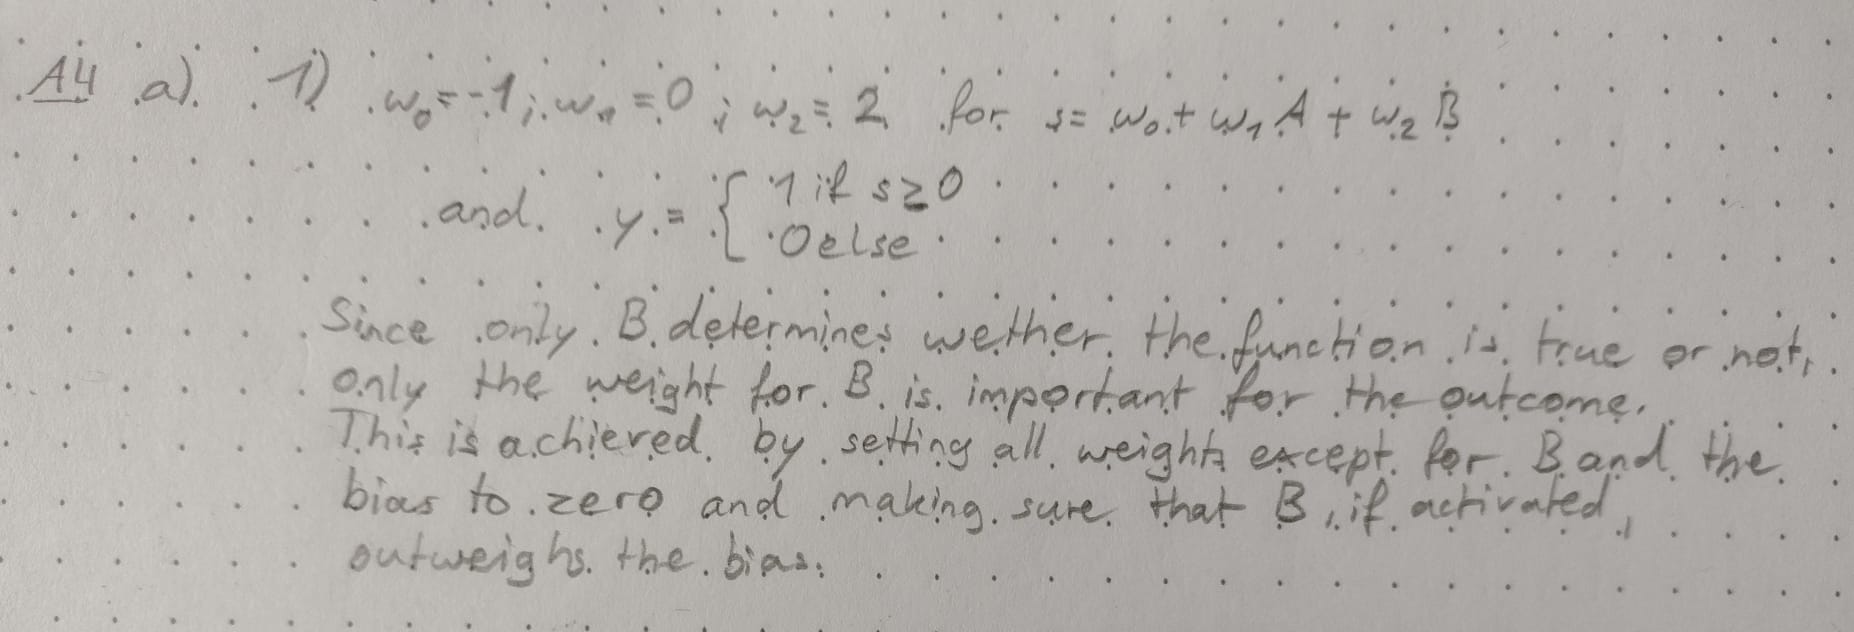 A4 a) 1) w₀=-1; w₁=0; w₂=2 for s= w₀+w₁A+w₂B
and y = { 1 if s≥0
0 else
Since only B determines wether the function is true or not,
only the weight for B is important for the outcome.
This is achieved by setting all weights except for B and the
bias to zero and making sure that B, if activated,
outweighs the bias.